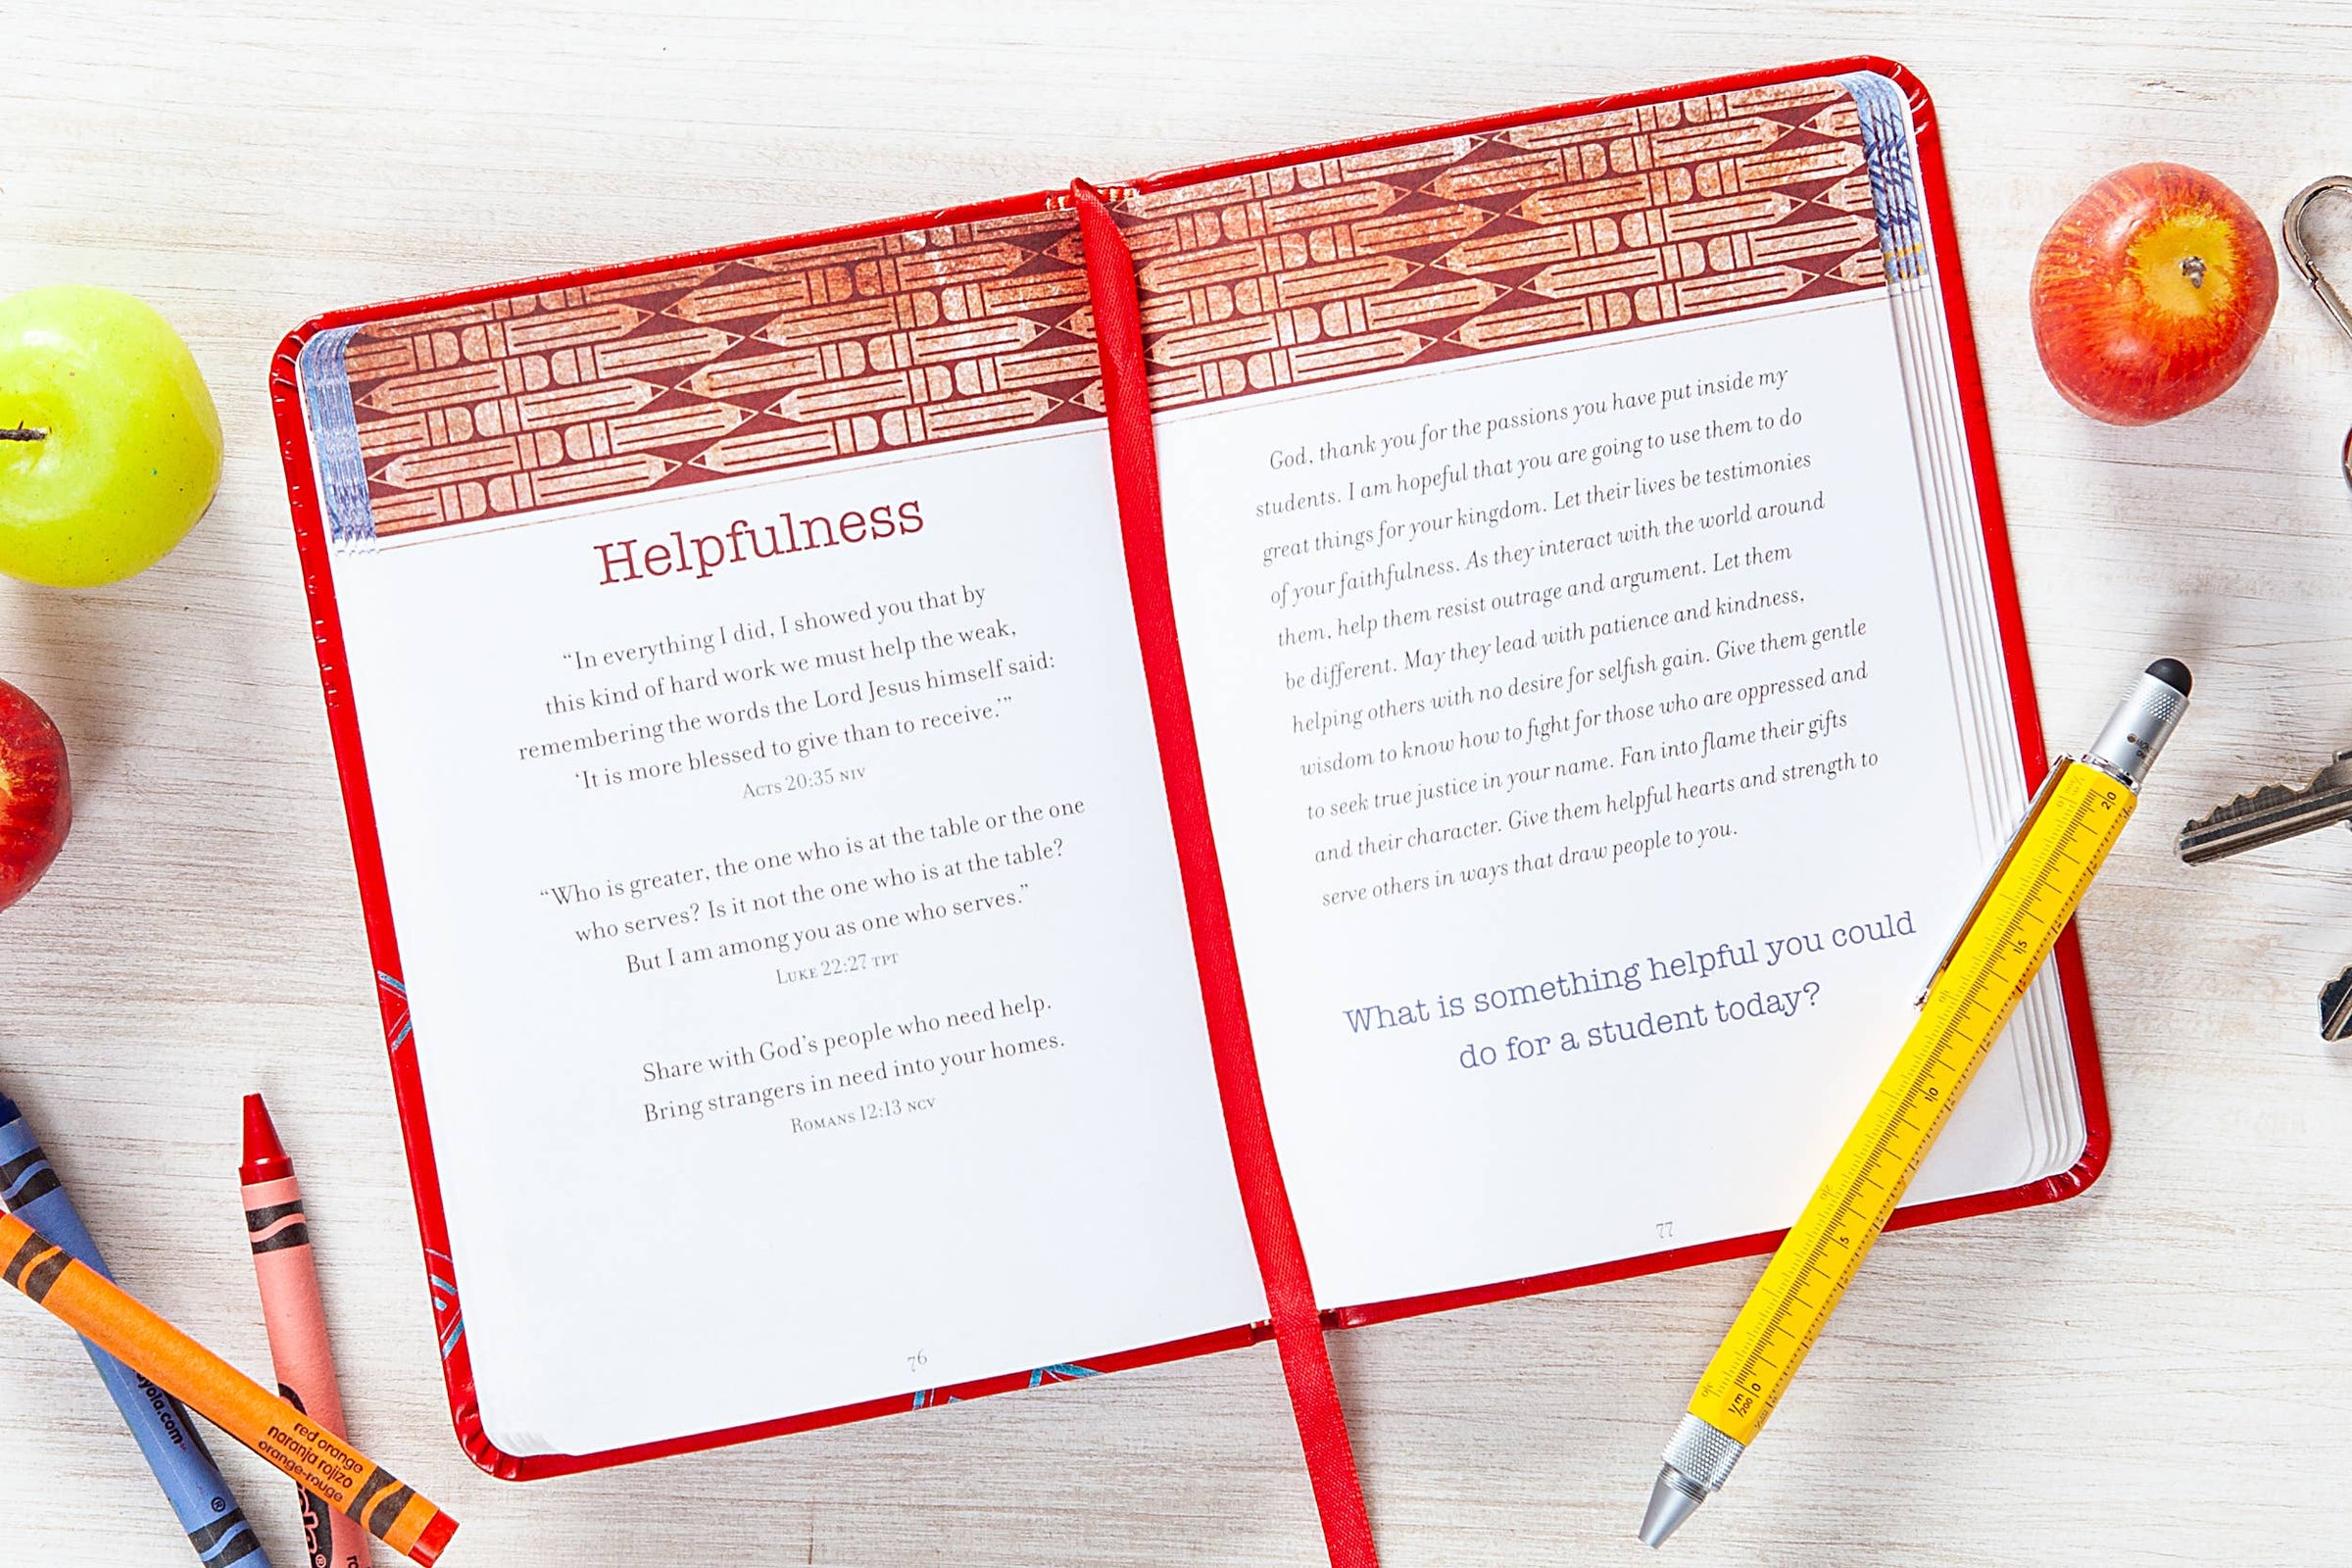 Helpfulness
“In everything I did, I showed you that by
this kind of hard work we must help the weak,
remembering the words the Lord Jesus himself said:
‘It is more blessed to give than to receive.’”
Acts 20:35 NIV
“Who is greater, the one who is at the table or the one
who serves? Is it not the one who is at the table?
But I am among you as one who serves.”
Luke 22:27 TPT
Share with God’s people who need help.
Bring strangers in need into your homes.
Romans 12:13 NCV
76
God, thank you for the passions you have put inside my
students. I am hopeful that you are going to use them to do
great things for your kingdom. Let their lives be testimonies
of your faithfulness. As they interact with the world around
them, help them resist outrage and argument. Let them
be different. May they lead with patience and kindness,
helping others with no desire for selfish gain. Give them gentle
wisdom to know how to fight for those who are oppressed and
to seek true justice in your name. Fan into flame their gifts
and their character. Give them helpful hearts and strength to
serve others in ways that draw people to you.
What is something helpful you could
do for a student today?
77
red orange
naranja rojizo
orange-rouge
yola.com
1/m
/200
0
5
10
15
20